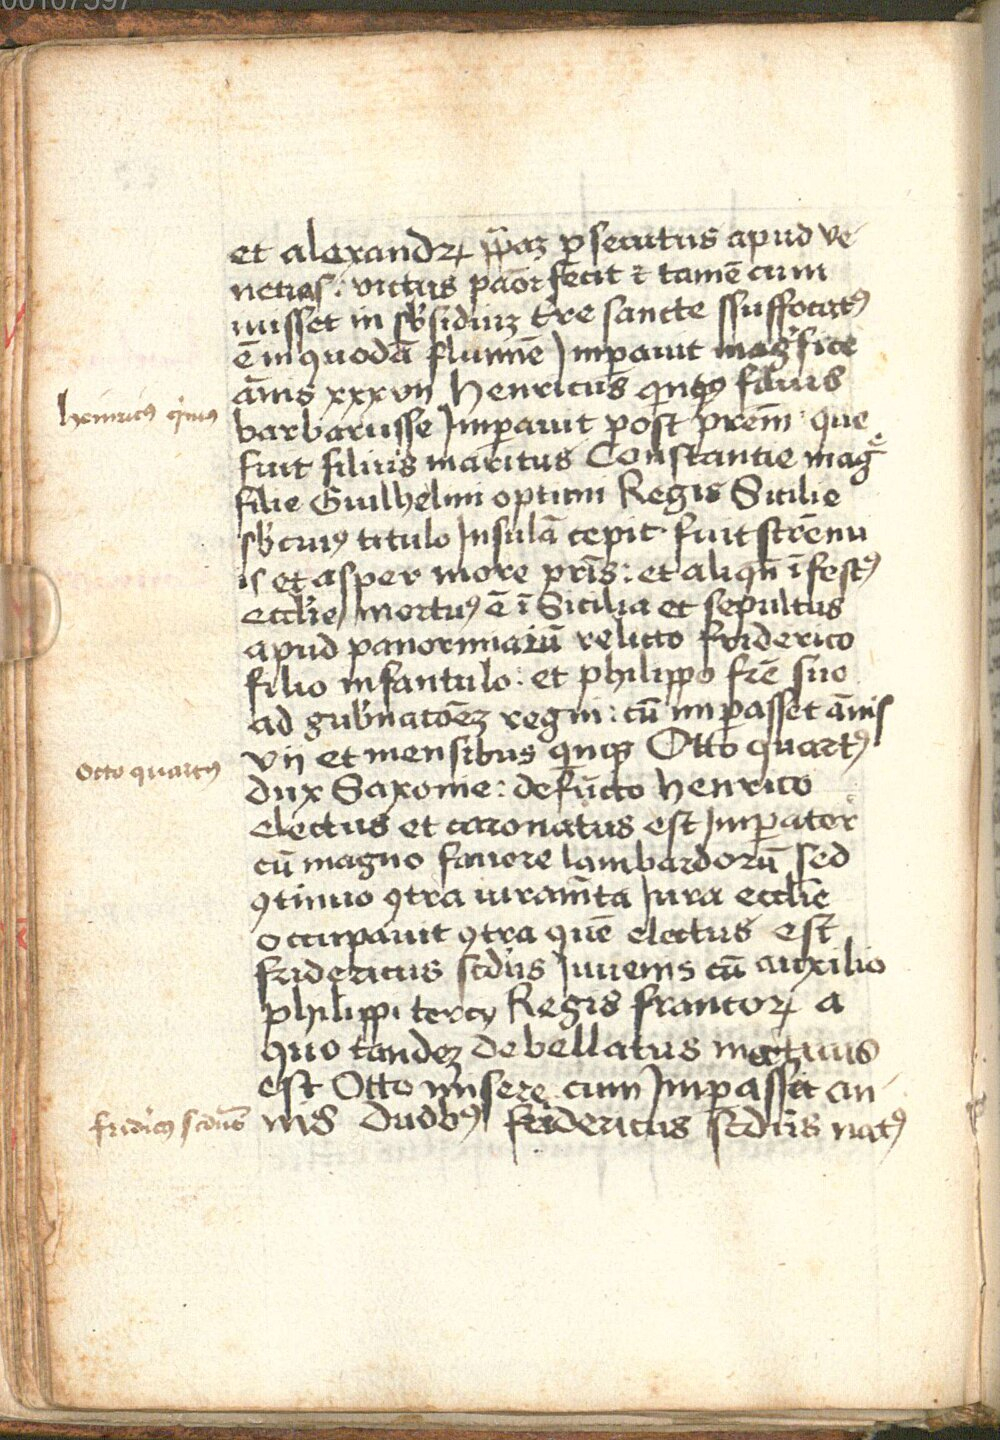 00107597
et alexandrꝝ ppaꝫ ꝑsecutus apud ve-
netias: victus pacē fecit ⁊ tamē cum
iuisset in sb'sidiuꝫ t're sancte ssuffocatꝰ
ē in quodā flumīe Imꝑauit mag'fice
ānis xxxvij Henricus qntꝰ filius
heinricꝰ qntus
barbarusse Imꝑauit post prēm: que
fuit filius maritus Constantie mag̅ᵉ
filie Guilhelmi optimi Regis Sicilie
sb' cuiꝰ titulo Insulā cepit fuit strēnu
is et asper more pr̄is: et aliqn̄ ī festꝰ
ecclīe mortuꝰ ē ī Sicilia et sepultus
apud panormitanū relicto friderico
filio infantulo: et philippo fr̄e suo
ad gub'natōeꝫ regni: cū imꝑasset ānis
vij et mensibus qnqꝫ Otto quartꝰ
Otto quartꝰ
dux Saxonie: defūcto henrico
electus et coronatus est Imꝑator
cū magno fauore lambardorū sed
ꝯtinuo ꝯtra iuramīta Jura ecclīe
occupauit ꝯtra quē electus est
fridericus scd'us Iuuenis cū auxilio
philippi tercij Regis francorꝝ a
quo tandeꝫ debellatus mortuus
est Otto misere cum Imꝑasset an-
nis duobꝰ fridericus scd'us natꝰ
fridicꝰ scdus